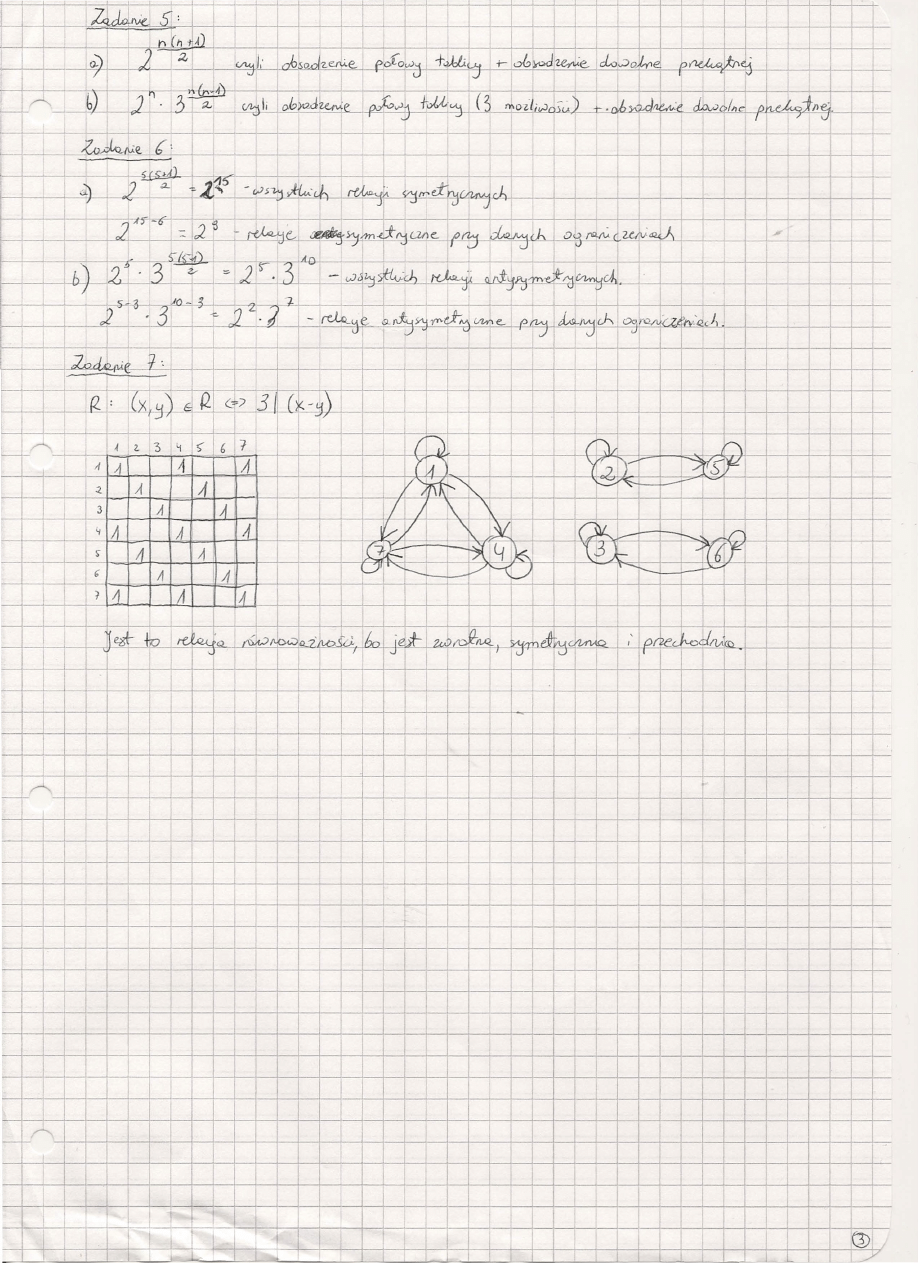 Zadanie 5:
a) 2^(n(n+1)/2) czyli obsadzenie połowy tablicy + obsadzenie dowolne przekątnej
b) 2^n · 3^(n(n-1)/2) czyli obsadzenie połowy tablicy (3 możliwości) + obsadzenie dowolne przekątnej.
Zadanie 6:
a) 2^(5(5+1)/2) = 2^15 - wszystkich relacji symetrycznych
2^(15-6) = 2^9 - relacje symetryczne przy danych ograniczeniach
b) 2^5 · 3^(5(5-1)/2) = 2^5 · 3^10 - wszystkich relacji antysymetrycznych.
2^(5-3) · 3^(10-3) = 2^2 · 3^7 - relacje antysymetryczne przy danych ograniczeniach.
Zadanie 7:
R: (x,y) ∈ R <=> 3 | (x-y)
1 2 3 4 5 6 7
1 1 1 1
2 1 1
3 1 1
4 1 1 1
5 1 1
6 1 1
7 1 1 1
1
7 4
2 5
3 6
Jest to relacja równoważności, bo jest zwrotna, symetryczna i przechodnia.
3